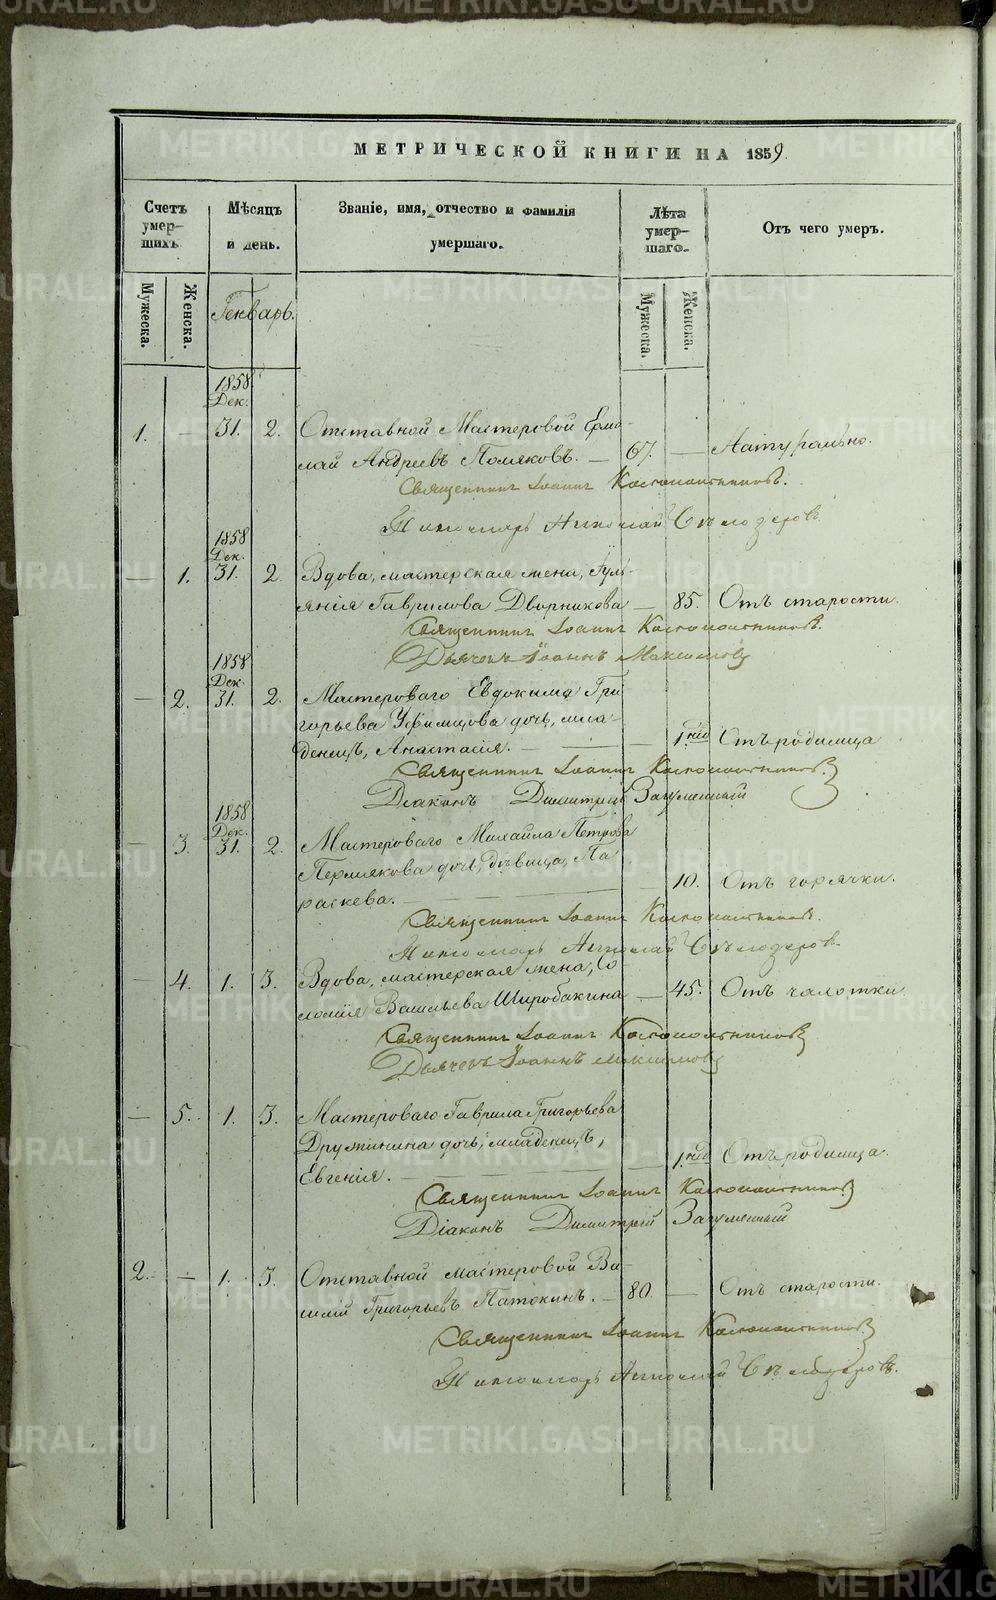 METRIKI.GASO-URAL.RU
МЕТРИЧЕСКОЙ КНИГИ НА 1859.
Счетъ умер-шихъ.
Мѣсяцъ и день.
Званіе, имя, отчество и фамилія умершаго.
Лѣта умер-шаго.
Отъ чего умеръ.
Мужеска.
Женска.
Генварь.
Мужеска.
Женска.
1858
Дек.
1. — 31. 2. Отставной Мастеровой Ермо-
лай Андреевъ Поляковъ. — 67. — Натурально.
Священникъ Іоаннъ
Пономарь Николай
1858
Дек.
— 1. 31. 2. Вдова, мастерская жена, Іуль-
янія Гаврилова Дворникова — 85. Отъ старости.
Священникъ Іоаннъ
Дьячекъ Іоаннъ Максимовъ
1858
Дек.
— 2. 31. 2. Мастероваго Евдокима Гри-
горьева Уфимцова дочь, мла-
денецъ, Анастасія. — — — 1 нед. Отъ родимца
Священникъ Іоаннъ
Діаконъ Димитрій
1858
Дек.
— 3. 31. 2. Мастероваго Михаила Петрова
Пермякова дочь, дѣвица, Па
раскева. — — 10. Отъ горячки.
Священникъ Іоаннъ
Пономарь Николай
— 4. 1. 3. Вдова, мастерская жена, Со
ломія Васильева Широбакина — 45. Отъ чахотки.
Священникъ Іоаннъ
Дьячекъ Іоаннъ Максимовъ
— 5. 1. 3. Мастероваго Гаврила Григорьева
Дружинина дочь, младенецъ,
Евгенія. — — 1 нед. Отъ родимца.
Священникъ Іоаннъ
Діаконъ Димитрій
2. — 1. 3. Отставной мастеровой Ва-
силій Григорьевъ Патокинъ. — 80. — Отъ старости.
Священникъ Іоаннъ
Пономарь Николай